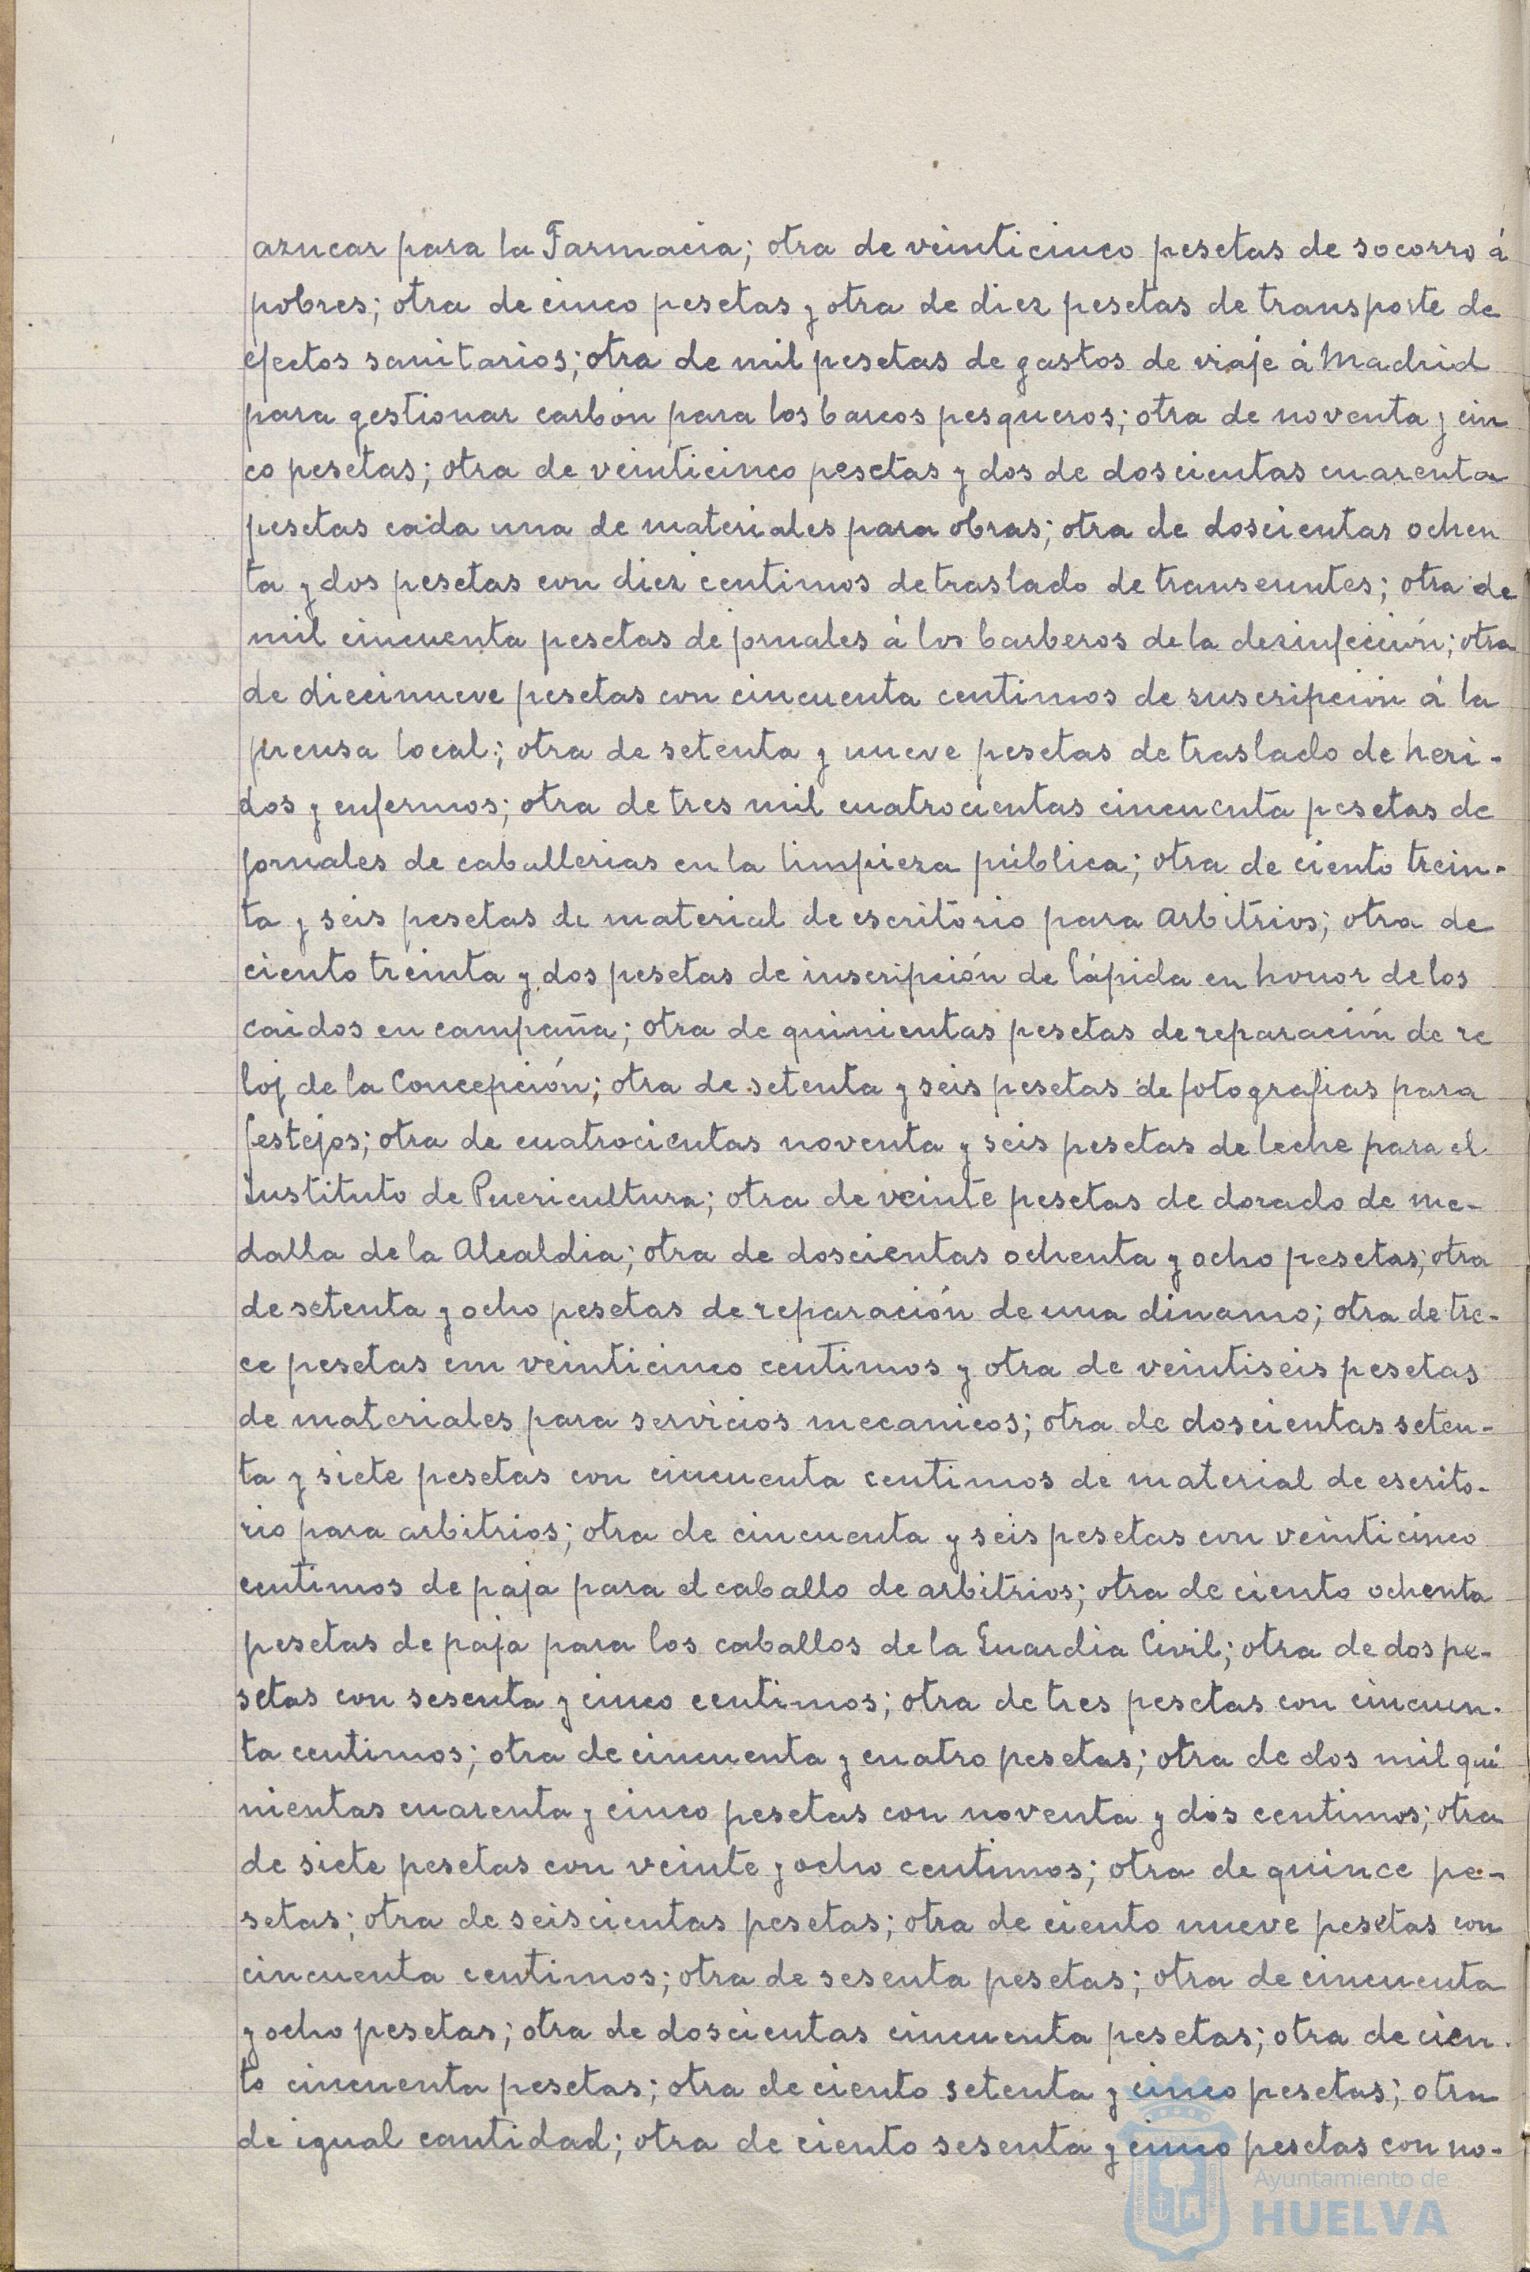 azucar para la Farmacia; otra de veinticinco pesetas de socorro á
pobres; otra de cinco pesetas y otra de diez pesetas de transporte de
efectos sanitarios; otra de mil pesetas de gastos de viaje á Madrid
para gestionar carbón para los barcos pesqueros; otra de noventa y cin
co pesetas; otra de veinticinco pesetas y dos de doscientas cuarenta
pesetas cada una de materiales para obras; otra de doscientas ochen
ta y dos pesetas con diez centimos de traslado de transeuntes; otra de
mil cincuenta pesetas de jornales á los barberos de la dezinfección; otra
de diecinueve pesetas con cincuenta centimos de suscripción á la
prensa local; otra de setenta y nueve pesetas de traslado de heri-
dos y enfermos; otra de tres mil cuatrocientas cincuenta pesetas de
jornales de caballerias en la limpieza pública; otra de ciento trein-
ta y seis pesetas de material de escritorio para Arbitrios; otra de
ciento treinta y dos pesetas de inscripción de lápida en honor de los
caidos en campaña; otra de quinientas pesetas de reparación de re
loj de la Concepción; otra de setenta y seis pesetas de fotografias para
festejos; otra de cuatrocientas noventa y seis pesetas de leche para el
Instituto de Puericultura; otra de veinte pesetas de dorado de me-
dalla de la Alcaldia; otra de doscientas ochenta y ocho pesetas; otra
de setenta y ocho pesetas de reparación de una dinamo; otra de tre-
ce pesetas con veinticinco centimos y otra de veintiseis pesetas
de materiales para servicios mecanicos; otra de doscientas seten-
ta y siete pesetas con cincuenta centimos de material de escrito-
rio para arbitrios; otra de cincuenta y seis pesetas con veinticinco
centimos de paja para el caballo de arbitrios; otra de ciento ochenta
pesetas de paja para los caballos de la Guardia Civil; otra de dos pe-
setas con sesenta y cinco centimos; otra de tres pesetas con cincuen-
ta centimos; otra de cincuenta y cuatro pesetas; otra de dos mil qui
nientas cuarenta y cinco pesetas con noventa y dos centimos; otra
de siete pesetas con veinte y ocho centimos; otra de quince pe-
setas; otra de seiscientas pesetas; otra de ciento nueve pesetas con
cincuenta centimos; otra de sesenta pesetas; otra de cincuenta
y ocho pesetas; otra de doscientas cincuenta pesetas; otra de cien-
to cincuenta pesetas; otra de ciento setenta y cinco pesetas; otra
de igual cantidad; otra de ciento sesenta y cinco pesetas con no-
Ayuntamiento de
HUELVA